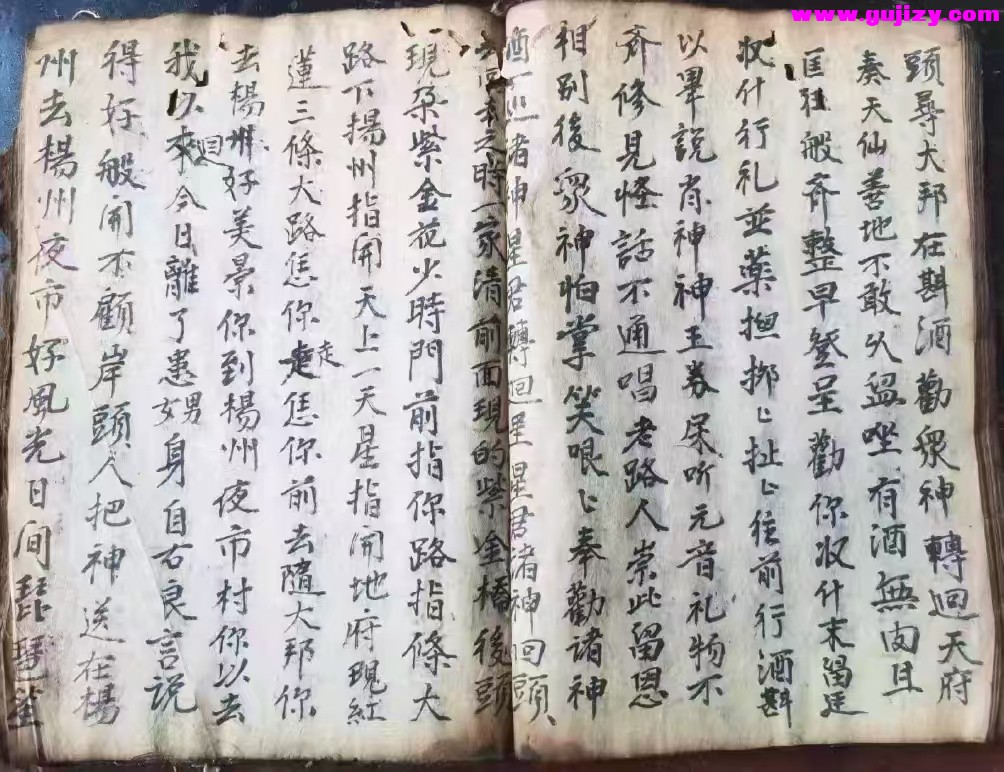 www.gujizy.com
頭尋大邦在斟酒勸眾神轉迴天府
奏天仙善地不敢久盌坐有酒無肉且
般齊整早登呈勸你収什末
収什行礼並藥担挷〻扯〻往前行酒斟
以畢說肖神神王券尿听元音礼物不
齐修見怪話不通唱老路人崇此留恩
相别後眾神怕掌笑哏〻奉勸諸神
酒一巡諸神星君轉迴星君諸神回頭
之時一家清前面現的紫金橋後頭
現朶紫金花火時門前指你路指條大
路下揚州指開天上一天星指開地府現紅
蓮三條大路恁你走恁你前去隨大邦你
去楊州好美景你到楊州夜市村你以去
我以來迴今日離了患男女身自右良言說
得好般開不顧岸頭人把神送在楊
州去楊州夜市好風光日间琵琶笙